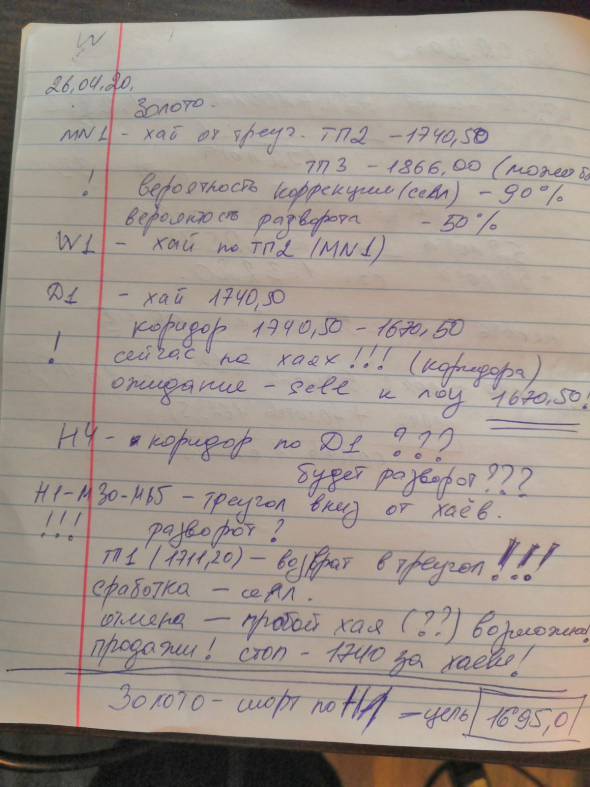 W
26.04.20.
Золото.
MN1 - хай от треуг. ТП2 - 1740,50
ТП3 - 1866,00 (может б
! вероятность коррекции (селл) - 90%
вероятность разворота - 50%
W1 - хай по ТП2 (MN1)
D1 - хай 1740,50
коридор 1740,50 - 1670,50
! сейчас на хаях!!! (коридора)
ожидание - sell к лоу 1670,50!
H4 - коридор по D1 ???
будет разворот???
H1-M30-M15 - треугол вниз от хаёв.
!!! разворот?
ТП1 (1711,20) - возврат в треугол!!!
сработка - селл.
отмена - пробой хая (??) возможна!
продажи! стоп - 1740 за хаем!
Золото - шорт по H1 - цель 1695,0